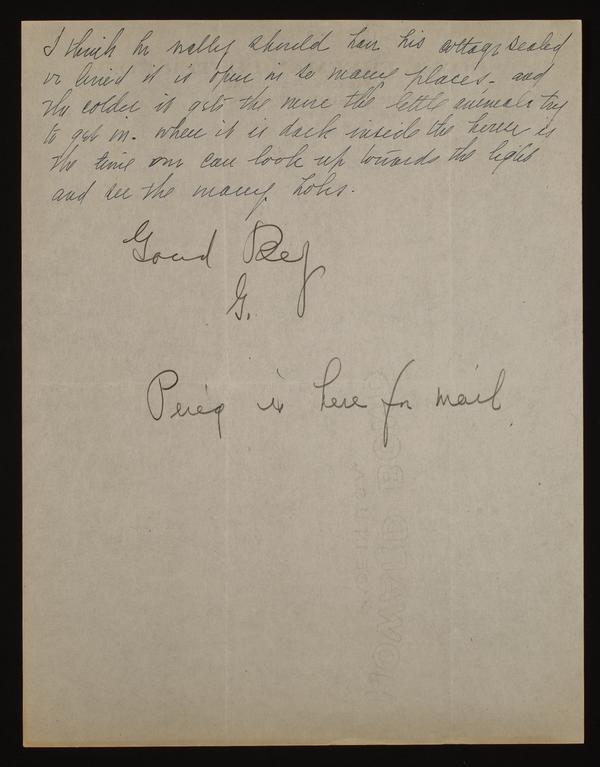 I think he really should have his cottage sealed
or lined it is open in so many places - and
the colder it gets the more the little animals try
to get in. When it is dark inside the house is
the time one can look up towards the light
and see the many holes.
Good Bey
G.
is here for mail
HOWARD BOND
MADE IN U.S.A.